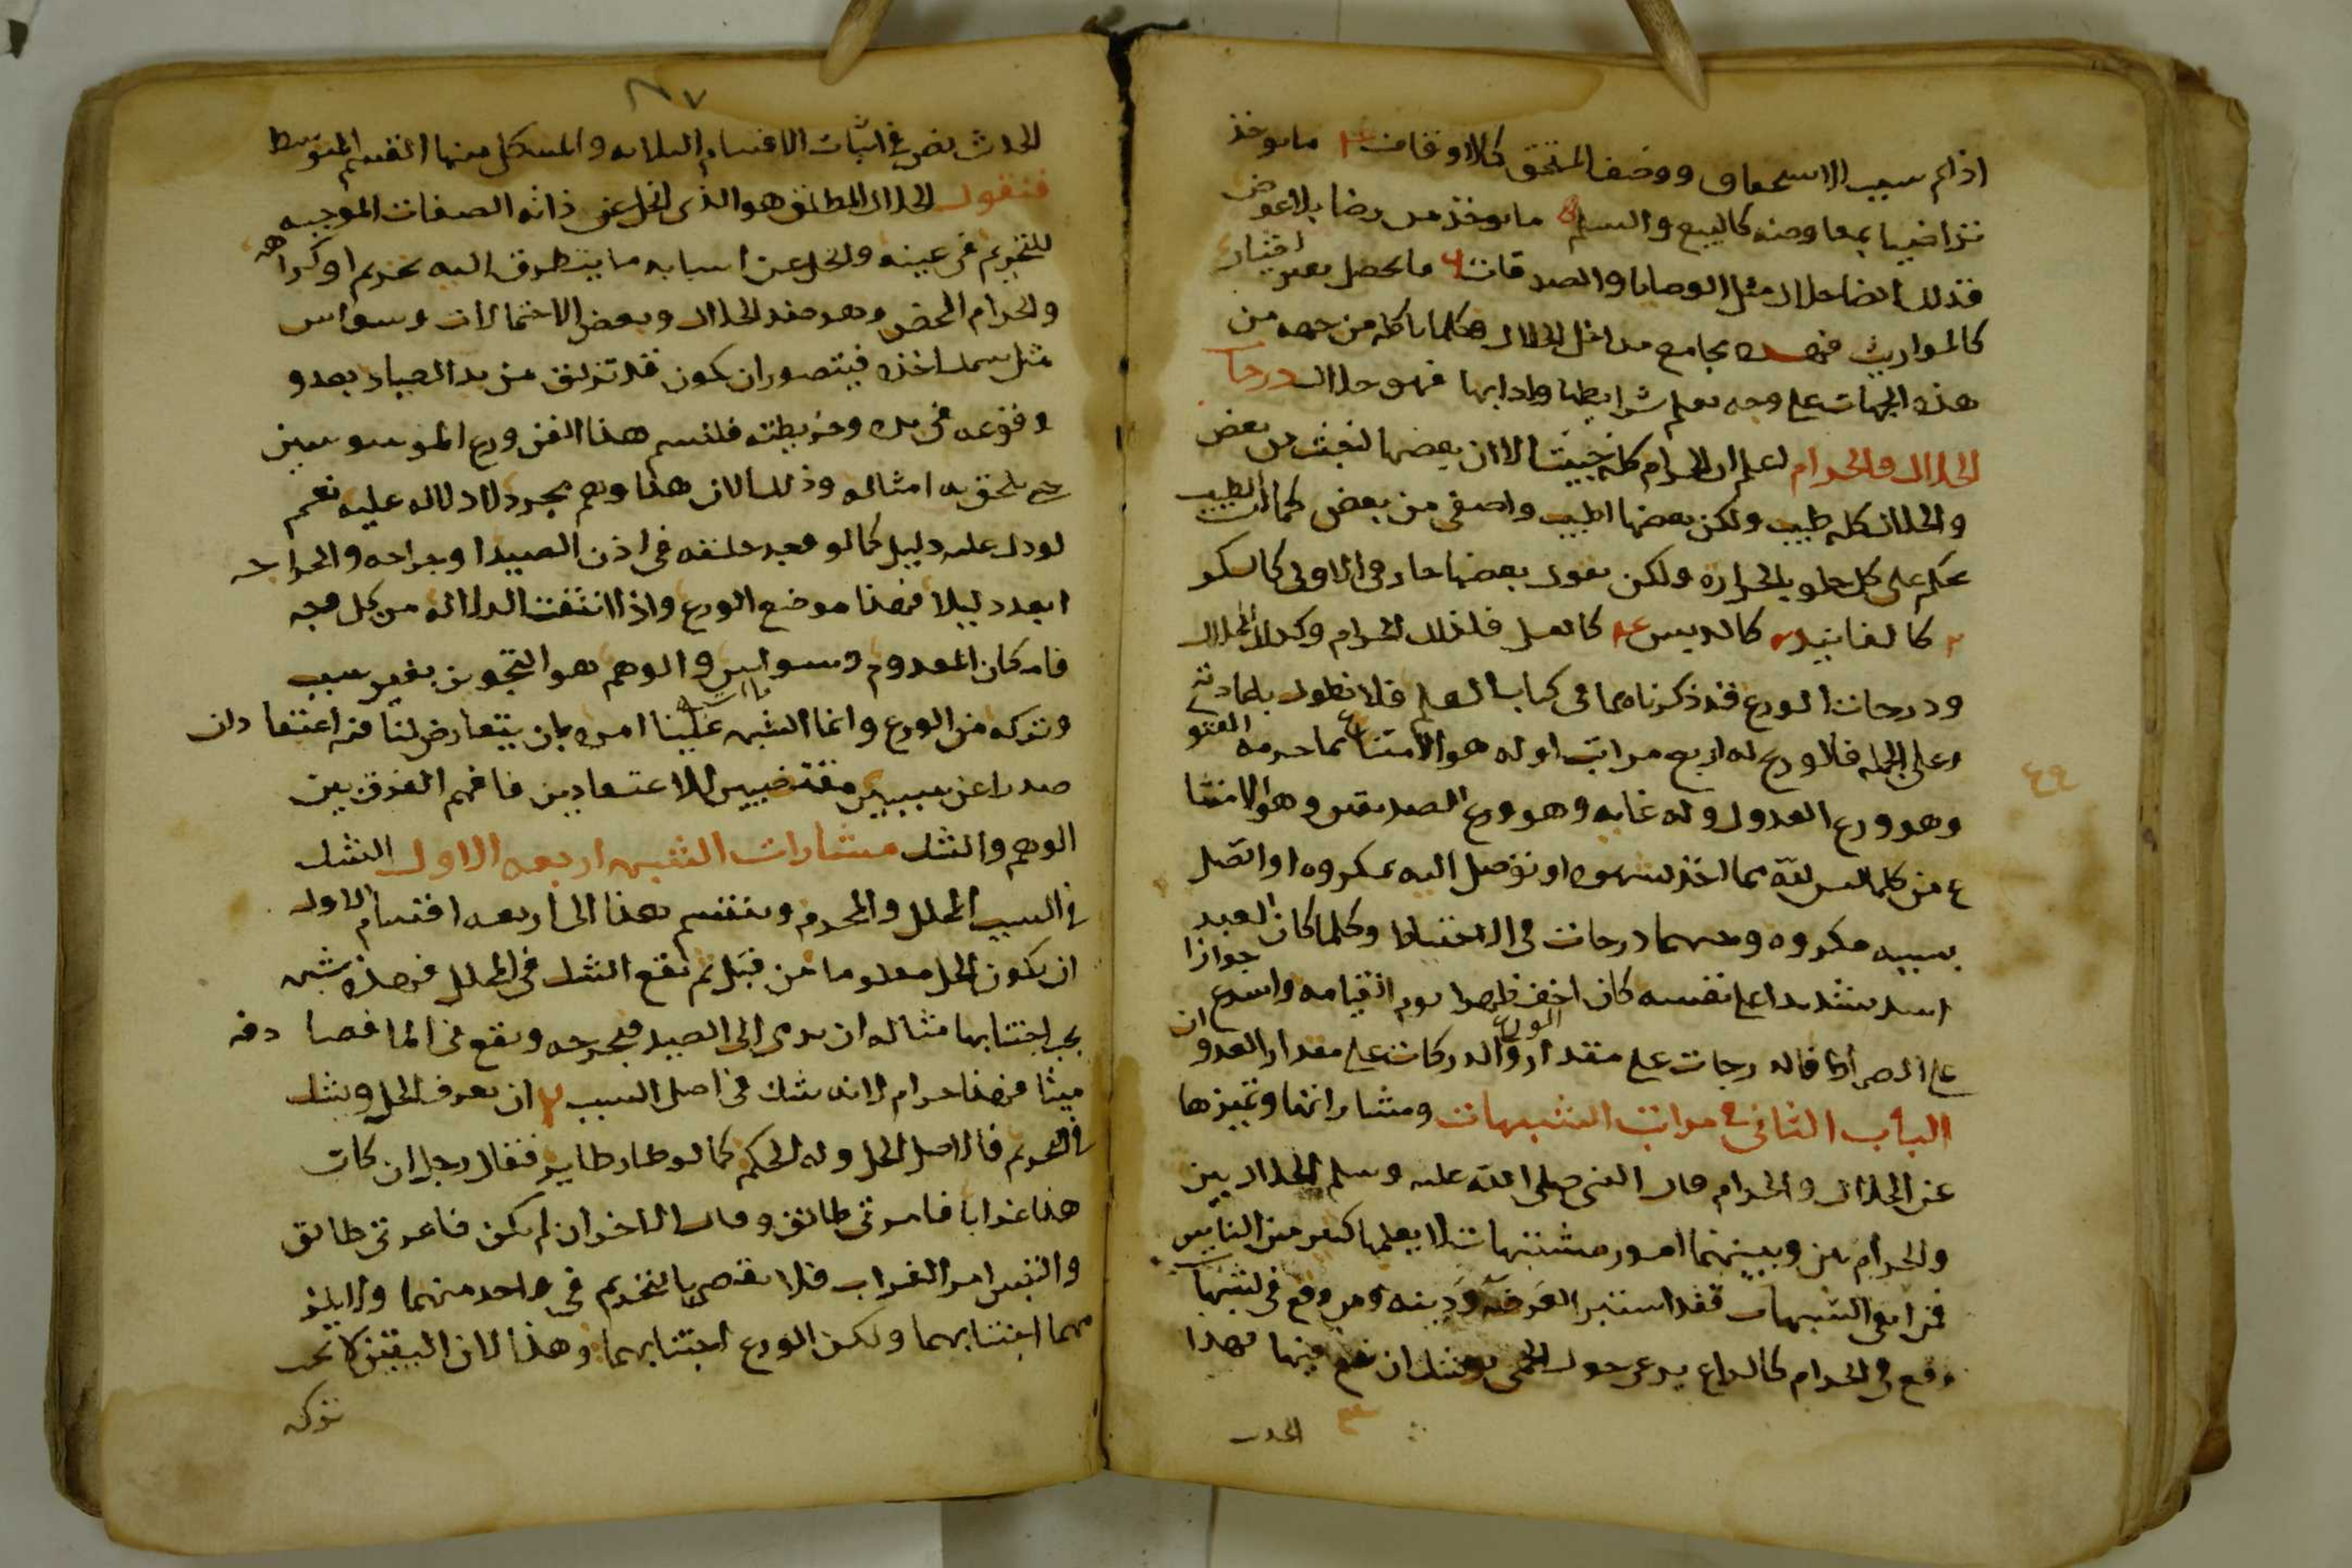 اذا تم سبب الاستحقاق ووصف المستحق كالاوقاف ٤ ما يوخذ
تراضيا بمعاوضه كالبيع والسلم ٥ ما يوخذ من رضا بلا عوض
فذلك ايضا حلال مثل الوصايا والصدقات ٦ ما يحصل بغير اختيار
كالمواريث فهذه مجامع مداخل الحلال فكلما ياكله من جهه من
هذه الجهات على وجه يعلم شرايطها وادابها فهو حلال درجات
الحلال والحرام اعلم ان الحرام كله خبيث الا ان بعضها اخبث من بعض
والحلال كله طيب ولكن بعضها اطيب واصفى من بعض كما ان الطبيب
يحكم على كل حلو بالحراره ولكن يقول بعضها حار في الاولى كالسكر
٢ كالفانيد ٣ كالدبس ٤ كالعسل فلذلك الحرام وكذلك الحلال
ودرجات الورع قد ذكرناهما في كتاب العلم فلا نطول باعادته
وعلى الجمله فالورع له اربع مراتب اوله هو الامتناع عما حرمه الفتو
وهو ورع العدول وله غايه وهو ورع الصديقين وهو الامتنا
ع من كلما ليس لله مما اخذ بشهوه او توصل اليه بمكروه او اتصل
بسببه مكروه وبينهما درجات في الاحتياط وكلما كان العبد
اشد تشديدا على نفسه كان اخف ظهرا يوم القيامه واسرع جوازا
على الصراط فالدرجات على مقدار الورع والدركات على مقدار العدوان
الباب الثاني في مراتب الشبهات ومثاراتها وتميزها
عن الحلال والحرام قال النبي صلى الله عليه وسلم الحلال بين
والحرام بين وبينهما امور مشتبهات لا يعلمها كثير من الناس
فمن اتقى الشبهات فقد استبرا لعرضه ودينه ومن وقع في الشبهات
وقع في الحرام كالراعي يرعى حول الحمى يوشك ان يقع فيها فهذا
الحدث
٨٧
الحدث نص في اثبات الاقسام الثلاثه والمشكل منها القسم المتوسط
فنقول الحلال المطلق هو الذي انحل عن ذاته الصفات الموجبه
للتحريم في عينه وانحل عن اسبابه ما يتطرق اليه تحريم او كراهه
والحرام المحض وهو ضد الحلال وبعض الاحتمالات وسواس
مثل سمك اخذه فيتصور ان يكون قد تزلق من يد الصياد بعد و
وقوعه في يده وخريطته فلنسم هذا الفن ورع الموسوسين
حتى يلحق به امثاله وذلك لان هذا وهم مجرد لا دلاله عليه نعم
لو دل عليه دليل كما لو وجد حلقه في اذن الصيد او جراحه والجراحه
ابعد دليلا فهذا موضع الورع واذا انتفت الدلاله من كل وجه
فانه كان المعدوم وسواس والوهم هو التجويز بغير سبب
وتركه من الورع وانما الشبه علينا امره بان يتعارض لنا فيه اعتقادان
صدرا عن سببين مقتضيين للاعتقادين فافهم الفرق بين
الوهم والشك مثارات الشبه اربعه الاول الشك
في السبب المحلل والمحرم وينقسم هذا الى اربعه اقسام الاول
ان يكون الحل معلوما من قبل ثم يقع الشك في المحلل فهذه شبه
يجب اجتنابها مثاله ان يرمي الى الصيد فيجرحه ويقع في الما فصادفه
ميتا فهذا حرام لانه شك في اصل السبب ٢ ان يعرف الحل ويشك
في المحرم فالاصل الحل وله الحكم كما لو طار طاير فقال رجل ان كان
هذا غرابا فامرتي طالق وقال الاخر ان لم يكن فامرتي طالق
والتبس امر الغراب فلا يقضى بالتحريم في واحد منهما ولا يلز
مهما اجتنابهما ولكن الورع اجتنابهما وهذا لان اليقين لا يجب
تركه